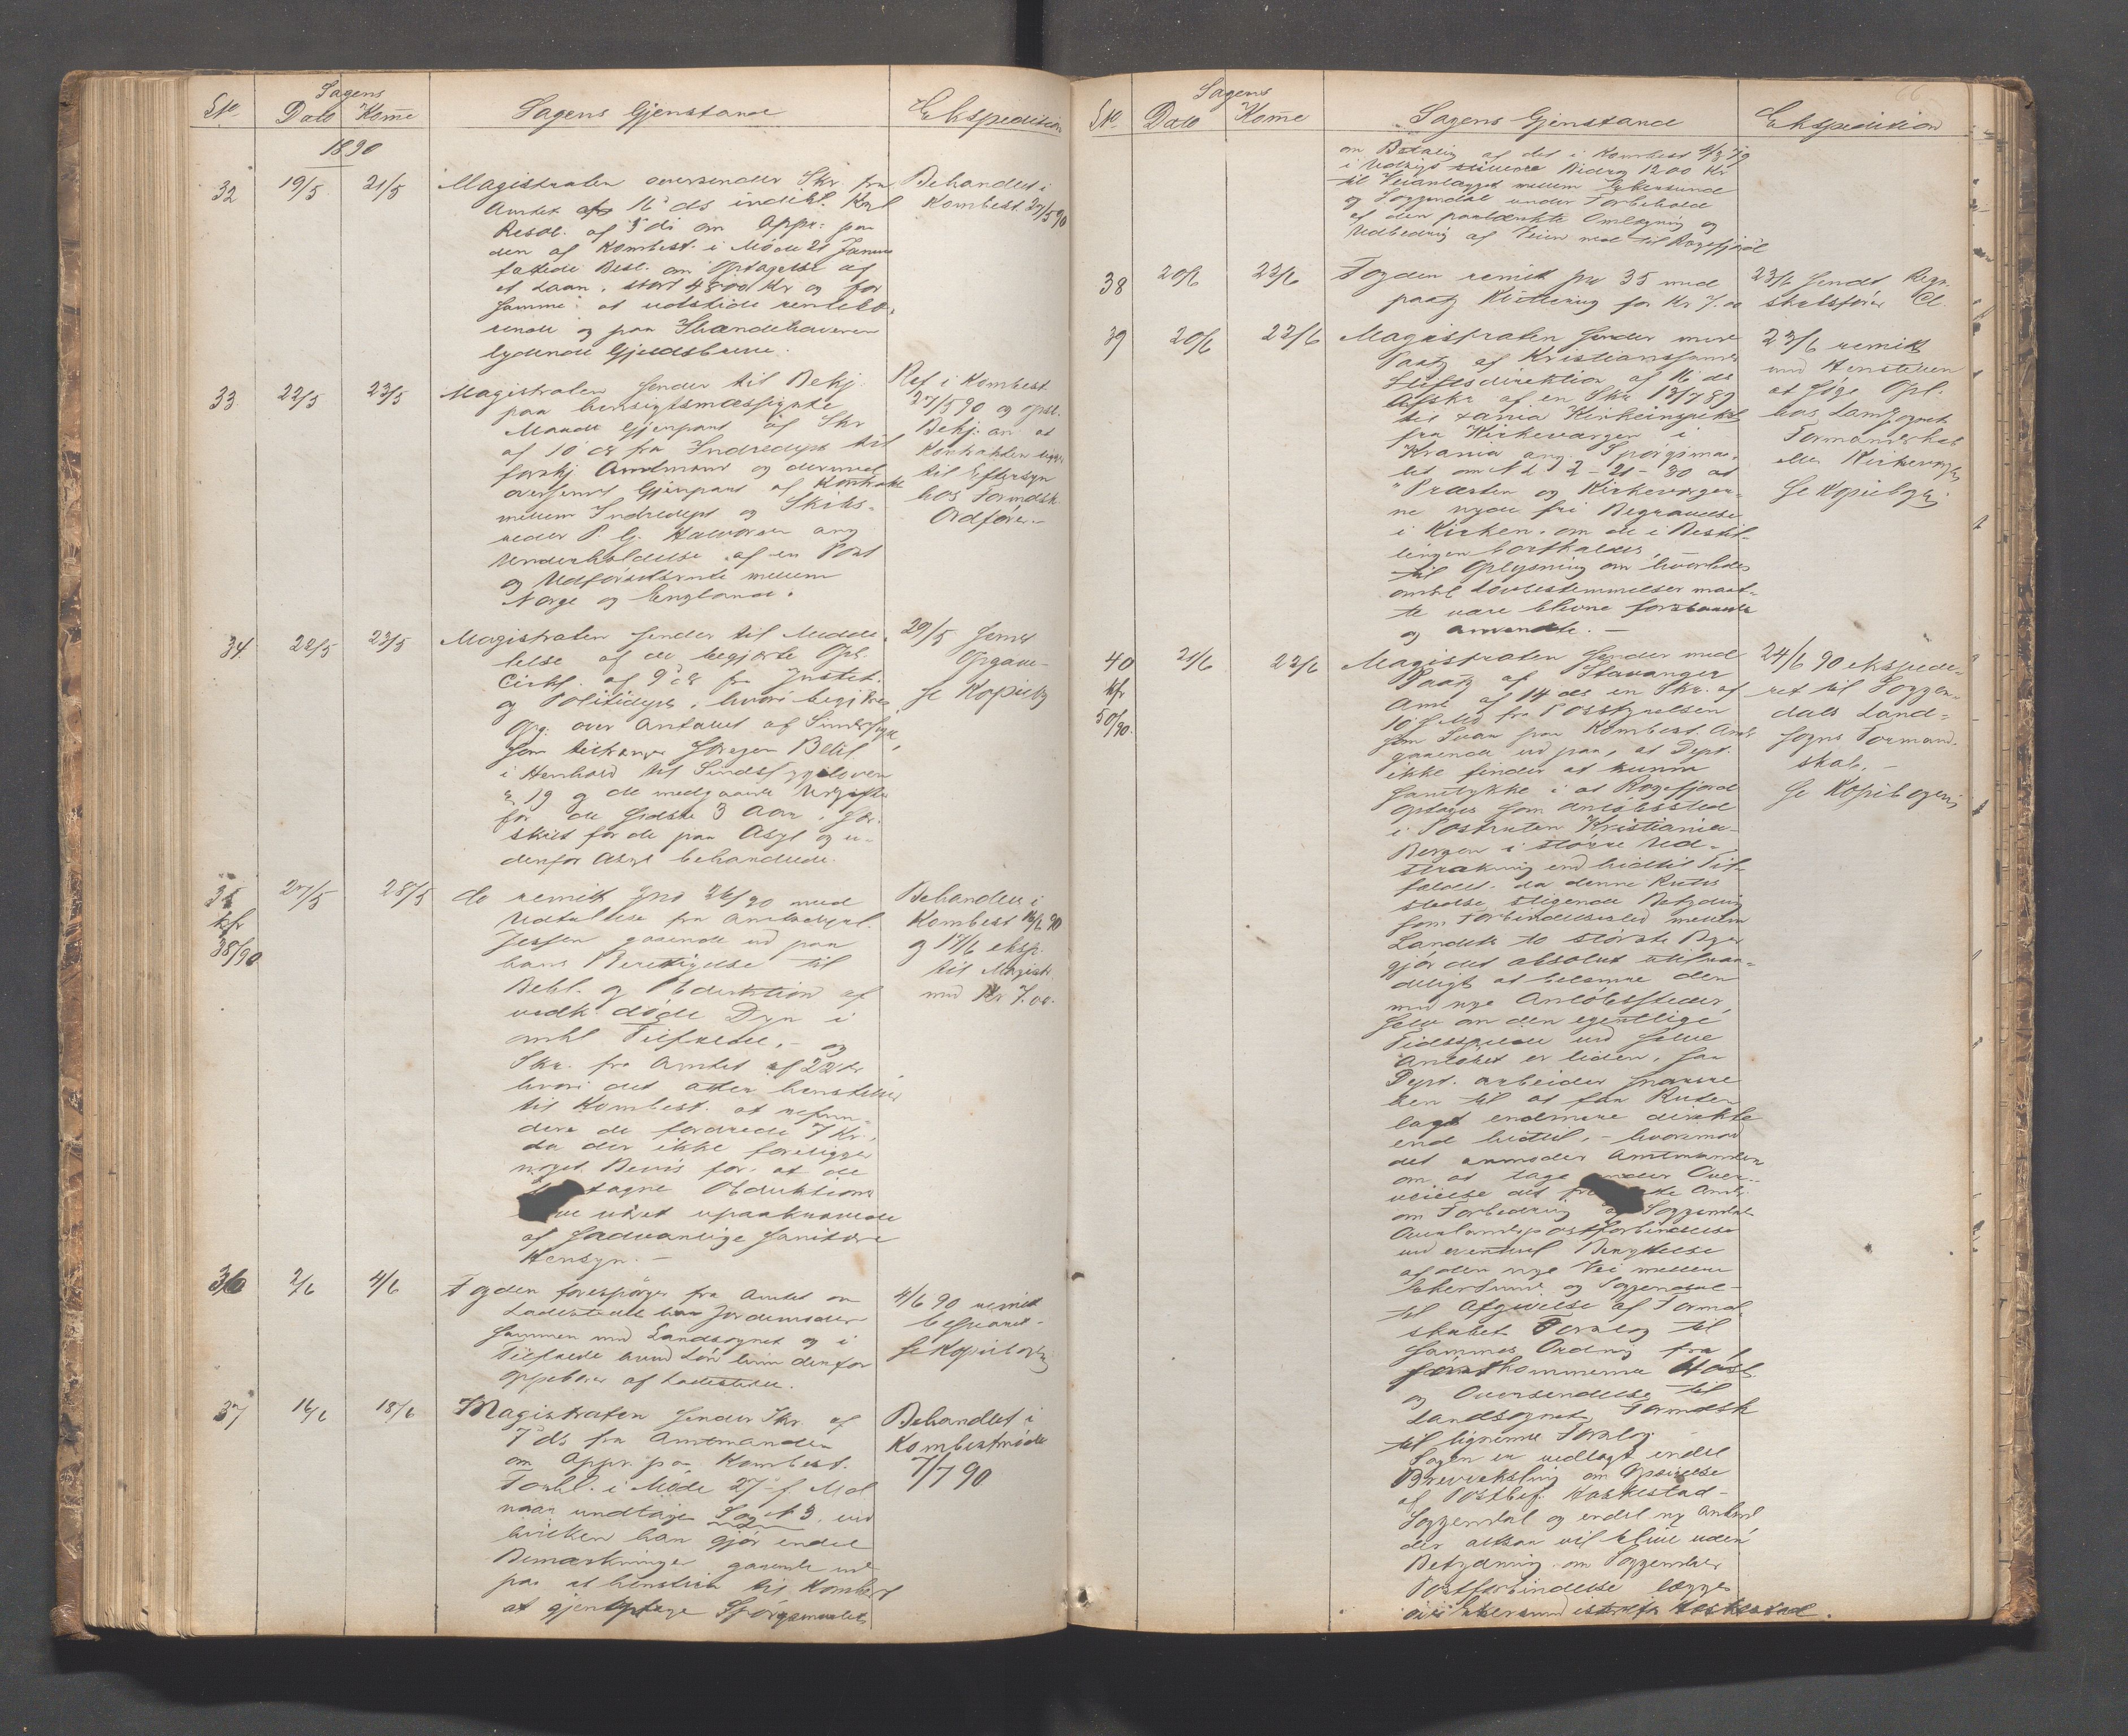 No. Sagens Dato Komme Sagens Gjenstand Ekspedition
1890
32 19/5 21/5 Magistraten oversender Skr. fra
Amtet af 16 ds indeh. Kgl
Resol. af 3 di om Appr. paa
den af Kombest. i Møde 21 Januar
fattede Besl. om Optagelse af
et Laan, stort 4800 Kr og for
samme at udstede rentebæ-
rende og paa Ihændehaveren
lydende Gjeldsbreve.
Behandlet i
Kombest. 27/5 90
33 22/5 23/5 Magistraten sender til Bekj.
paa hensigtsmæssigste
Maade Gjenpart af Skr
af 10 ds fra Indredept til
forskj Amtmænd og dermed
oversendt Gjenpart af Kontrakt
mellem Indredept og Skibs-
reder P. G. Halvorsen ang
Underholdelse af en Post
og Udførselsrute mellem
Norge og England.
Ref i Kombest
27/5 90 og opsl.
Bekj. om at
Kontrakten ligger
til Eftersyn
hos Formdsk.
Ordfører.
34 22/5 23/5 Magistraten sender til Medde-
lelse af de begjærte Opl.
Cirkl. af 9 ds fra Justits.
og Politidept, hvori begjæres
Opg. over Antallet af Sindssyge,
som tiltrænger
i Henhold til Sindssygeloven
§ 19 og de medgaaede Udgifter
for de sidste 3 Aar, sær-
skilt for de paa Asyl og u-
denfor Asyl behandlede.
29/5 sendt
Opgave
se Kopibog
35
kfr
38/90
27/5 28/5 do remitt Jno 26/90 med
Udtalelse fra Amtsdyrl.
Jessen gaaende ud paa
hans Berettigelse til
Behl. og Obduktion af
vedk døde Dyr i
omhl Tilfælde, og
Skr. fra Amtet af 22 ds
hvori det atter henstilles
til Kombest. at refun-
dere de fordrede 7 Kr.,
da der ikke foreligger
noget Bevis for, at de
tagne Obduktioner
været upaakrævede
af sædvanlige sanitære
Hensyn.
Behandlet i
Kombest 16/6 90
og 17/6 eksp.
til Magistr
med Kr 7.00.
36 2/6 4/6 Fogden forespørger fra Amtet om
Ladestedet har Jordemoder
sammen med Landsognet og i
Tilfælde hvad Løn hun derfor
oppebærer af Ladestedet.
4/6 90 remitt
besvaret
se Kopibogen
37 16/6 18/6 Magistraten sender Skr. af
7 ds fra Amtmanden
om Appr. paa Kombest.
Forhl. i Møde 27 f. Md
naar undtages Sag N 3, ved
hvilken han gjør endel
Bemærkninger gaaende ud
paa at henstille til Kombest
at gjenoptage Spørgsmaalet
Behandlet i
Kombestmøde
7/7 90
66
No. Sagens Dato Komme Sagens Gjenstand Ekspedition
om Betaling af det i Kombest 4/3 79
i Udsigt stillede Bidrag 1200 Kr
til Veianlægget mellem Ekersund
og Soggendal under Forbehold
af den paatænkte Omlægning og
Udbedring af Veien ned til Rægefjord
38 20/6 23/6 Fogden remitt Jno 35 med
paatg Kvittering for Kr 7.00
23/6 sendt Regn-
skabsfører Cl.
39 20/6 23/6 Magistraten sender med
Paatg af Kristianssands
Stiftsdirektion af 16 ds
Afskr af en Skr 13/7 89
til Xania Kirkeinspekt
fra Kirkeværgen i
Krania ang. Spørgsmaa-
let om N.L. 2-21-30 at
"Præsten og Kirkeværger-
ne nyde fri Begravelse
i Kirken, om de i Bestil-
lingen bortkalder,
til Oplysning om hvorledes
omhl Lovbestemmelser maat-
te være blevne forstaaede
og anvendte.
23/6 remitt
med Henstillen
at søge Opl.
hos Landsognets
Formandskab
eller Kirkeværge
se Kopibogen
40
kfr
50/90.
21/6 23/6 Magistraten sender med
Paatg af Stavanger
Amt af 14 ds en Skr. af
10 s. Md. fra Poststyrelsen
som Svar paa Kombest. Andr
gaaende ud paa, at Dept.
ikke finder at kunne
samtykke i at Rægefjord
optages som Anløbssted
i Postruten Kristiania-
Bergen i større Ud-
strækning end hidtil Til-
fældet, da denne Rutes
stedse stigende Betydning
som Forbindelsesled mellem
Landets to største Byer
gjør det absolut utilraa-
deligt at belemre den
med nye Anløbssteder,
selv om den egentlige
Tidsspilde ved selve
Anløbet er liden, saa
Dept. arbeider snarere
hen til at faa Ruten
lagt endmere direkte
end hidtil, - hvorimod
det anmoder Amtmanden
om at tage under Over-
veielse det Amt.
om Forbedring af Soggendals
Overlandspostforbindelse
ved eventuel Benyttelse
af den nye Vei mellem
Ekersund og Soggendal
til Afgivelse af Formd-
skabet Forslag til
sammes Ordning fra
førstkommende Høst
og Oversendelse til
Landsognets Formdsk
til lignende Forslag.
Sagen er vedlagt endel
Brevveksling om Opsigelse
af Postbef. Haskestad-
Soggendal og endel ny Anbud
der altsaa vil blive uden
Betydning om Soggendals
Postforbindelse lægges
over Ekersund istedetfor Heskestad.
24/6 90 ekspede-
ret til Soggen-
dals Land-
sogns Formand-
skab.
se Kopibogen